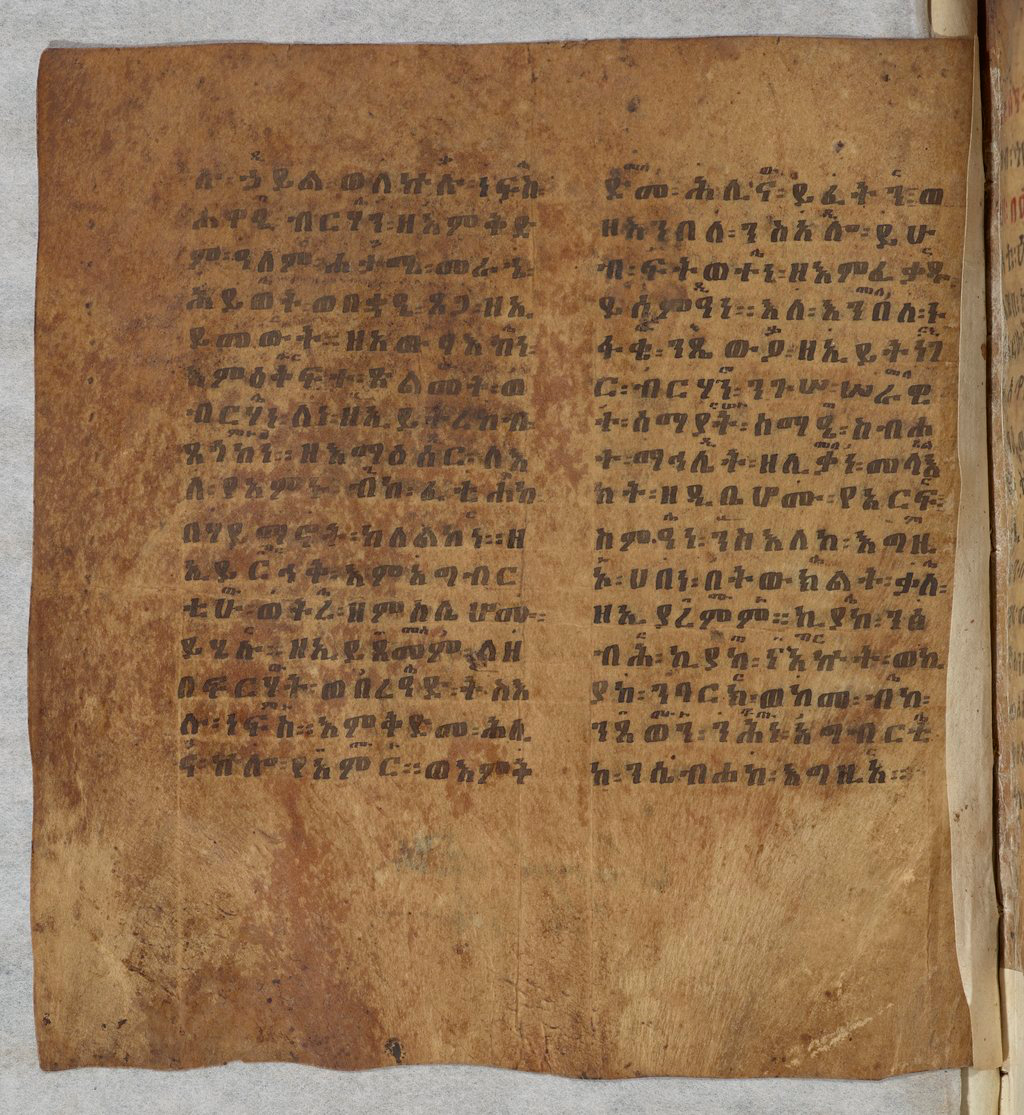 ሉ፡ኃይል፡ወለኵሉ፡ነፍስ
ሐዋዲ፡ብርሃን፡ዘእምቅድ
ም፡ዓለም፡ሐታሚ፡መራኒ፡
ሕይወት፡ወበቋዒ፡ጸጋ፡ዘኢ
ይመውት፡፡ዘአውፃእከነ፡
እምዕትፍት፡ጽልመት፡ወ
ብርሃነ፡ለነ፡ዘኢይትረከብ
ጸጎከነ፡፡ዘእማዕሰር፡ለእ
ለ፡የአምኑ፡ብከ፡ፈቲሐከ
በሃይማኖት፡ከለልከነ፡፡ዘ
ኢይርኅቅ፡እምአግብር
ቲሁ፡ወትረ፡ዘምስሌሆሙ፡
ይሄሉ፡፡ዘኢይጸመም፡ለዘ
በፍርሃት፡ወበረዓድ፡ትስእ
ሉ፡ነፍስ፡፡እምቅድመ፡ሕሊ
ና፡ኵሎ፡የአምር፡፡ወእምት
ድመ፡ሕሊና፡ይፈትን፡ወ
ዘእንበለ፡ንስአሎ፡ይሁ
ብ፡ፍትወተነ፡ዘእምፈቃዱ
ይሰምዓነ፡፡እለ፡እንበለ፡ኑ
ፋቄ፡ንጼውዖ፡ዘኢይትነገ
ር፡ብርሃን፡ንጉሠ፡ሠራዊ
ተ፡ሰማያት፡ሰማዒ፡ስብሐ
ተ፡ማኅሌት፡ዘሊቃነ፡መላእ
ክት፡ዘዲቤሆሙ፡የአርፍ፡
ስምዓነ፡ንስእለከ፡እግዚ
አ፡ሀበነ፡በትውክልት፡ቃለ፡
ዘኢያረምም፡፡ኪያከ፡ንሴ
ብሕ፡ኪያከ፡ነአኵት፡ወኪ
ያከ፡ንባርክ፡ወከመ፡ብከ፡
ንጼወን፡ንሕነ፡አግብርቲ
ከ፡ንሴብሐከ፡እግዚአ፡፡